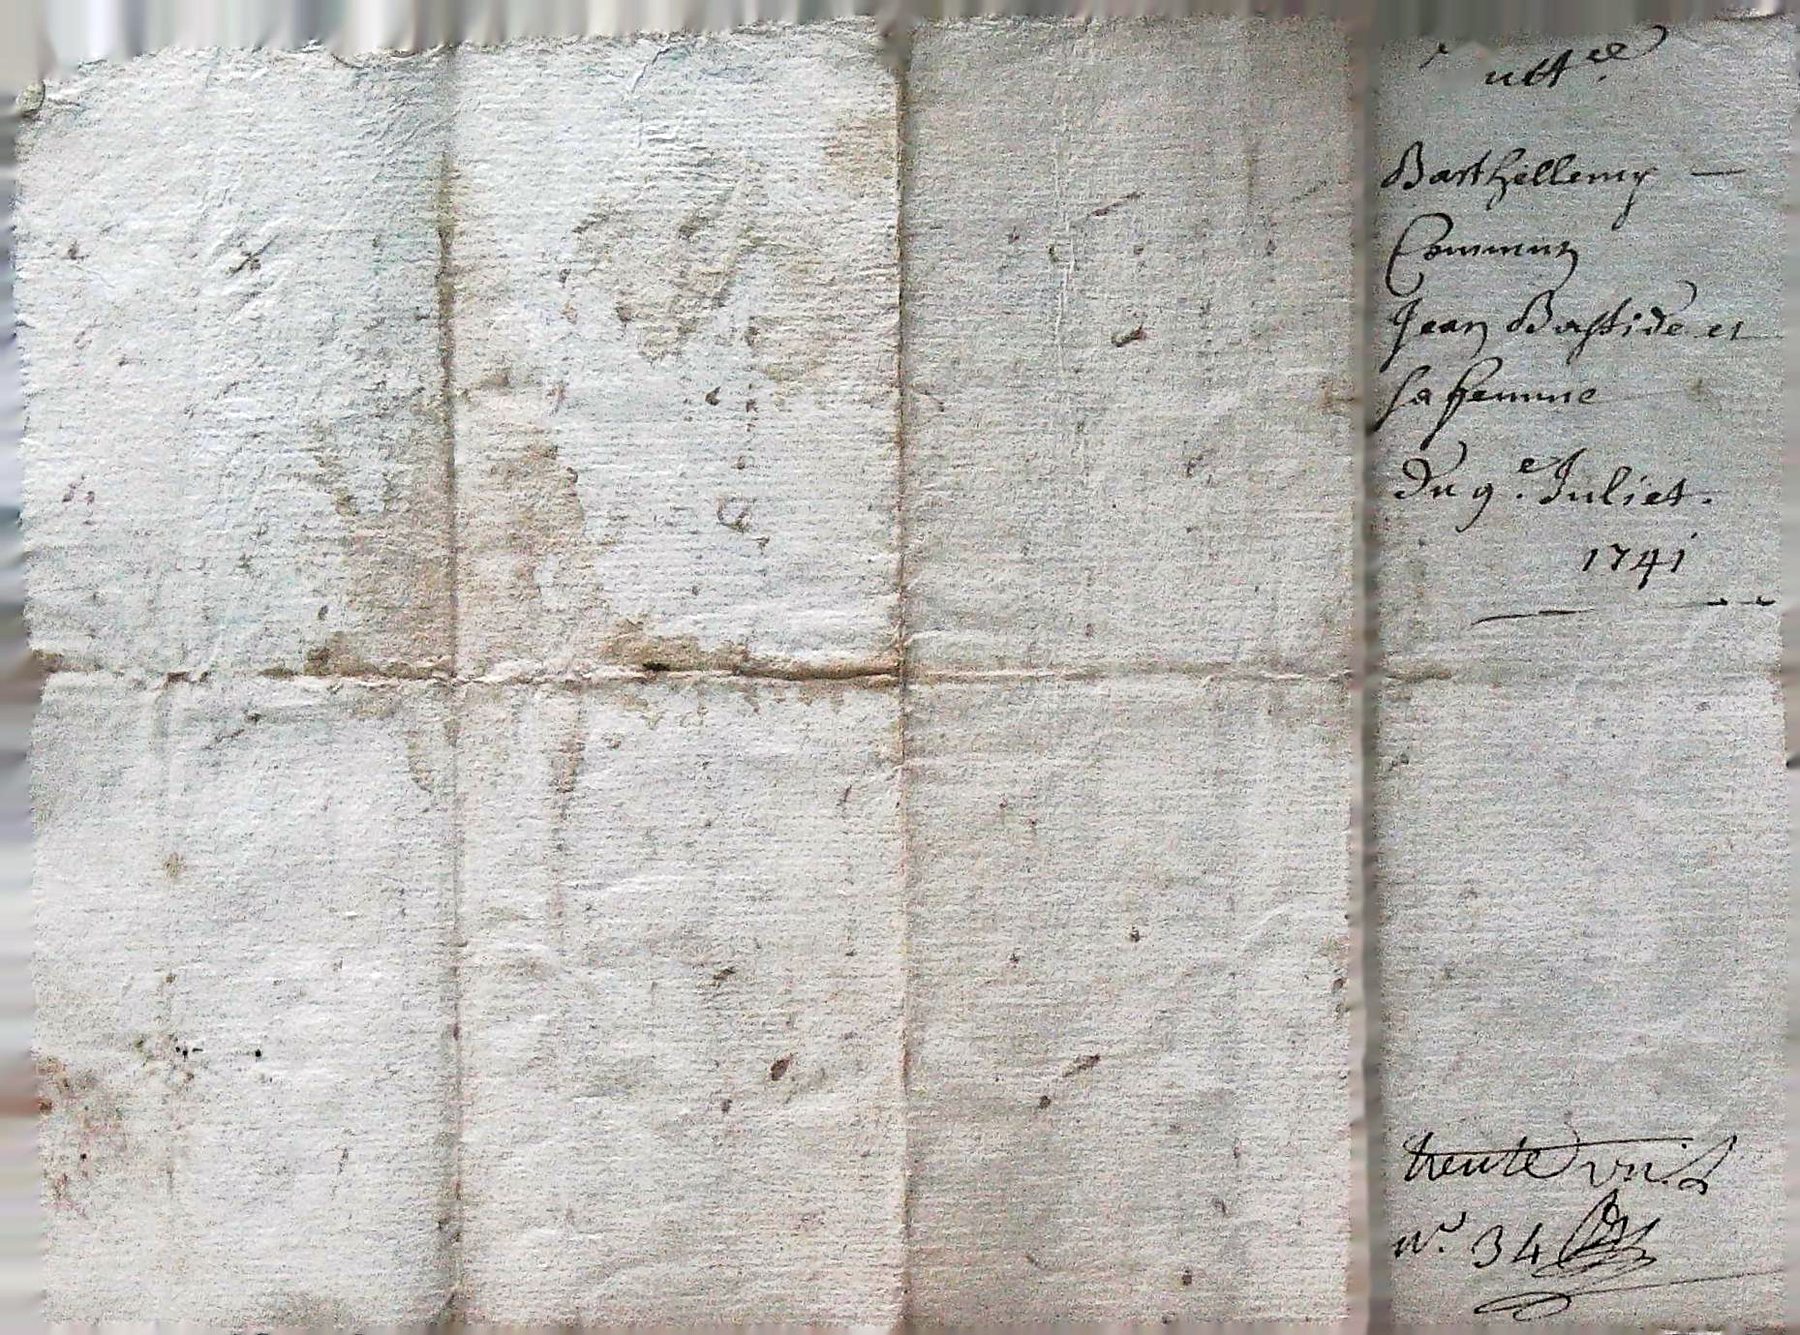 Barthellemy —
Jean Bastide et
sa femme
du 9.e Juliet.
1741
trente
n.o 34